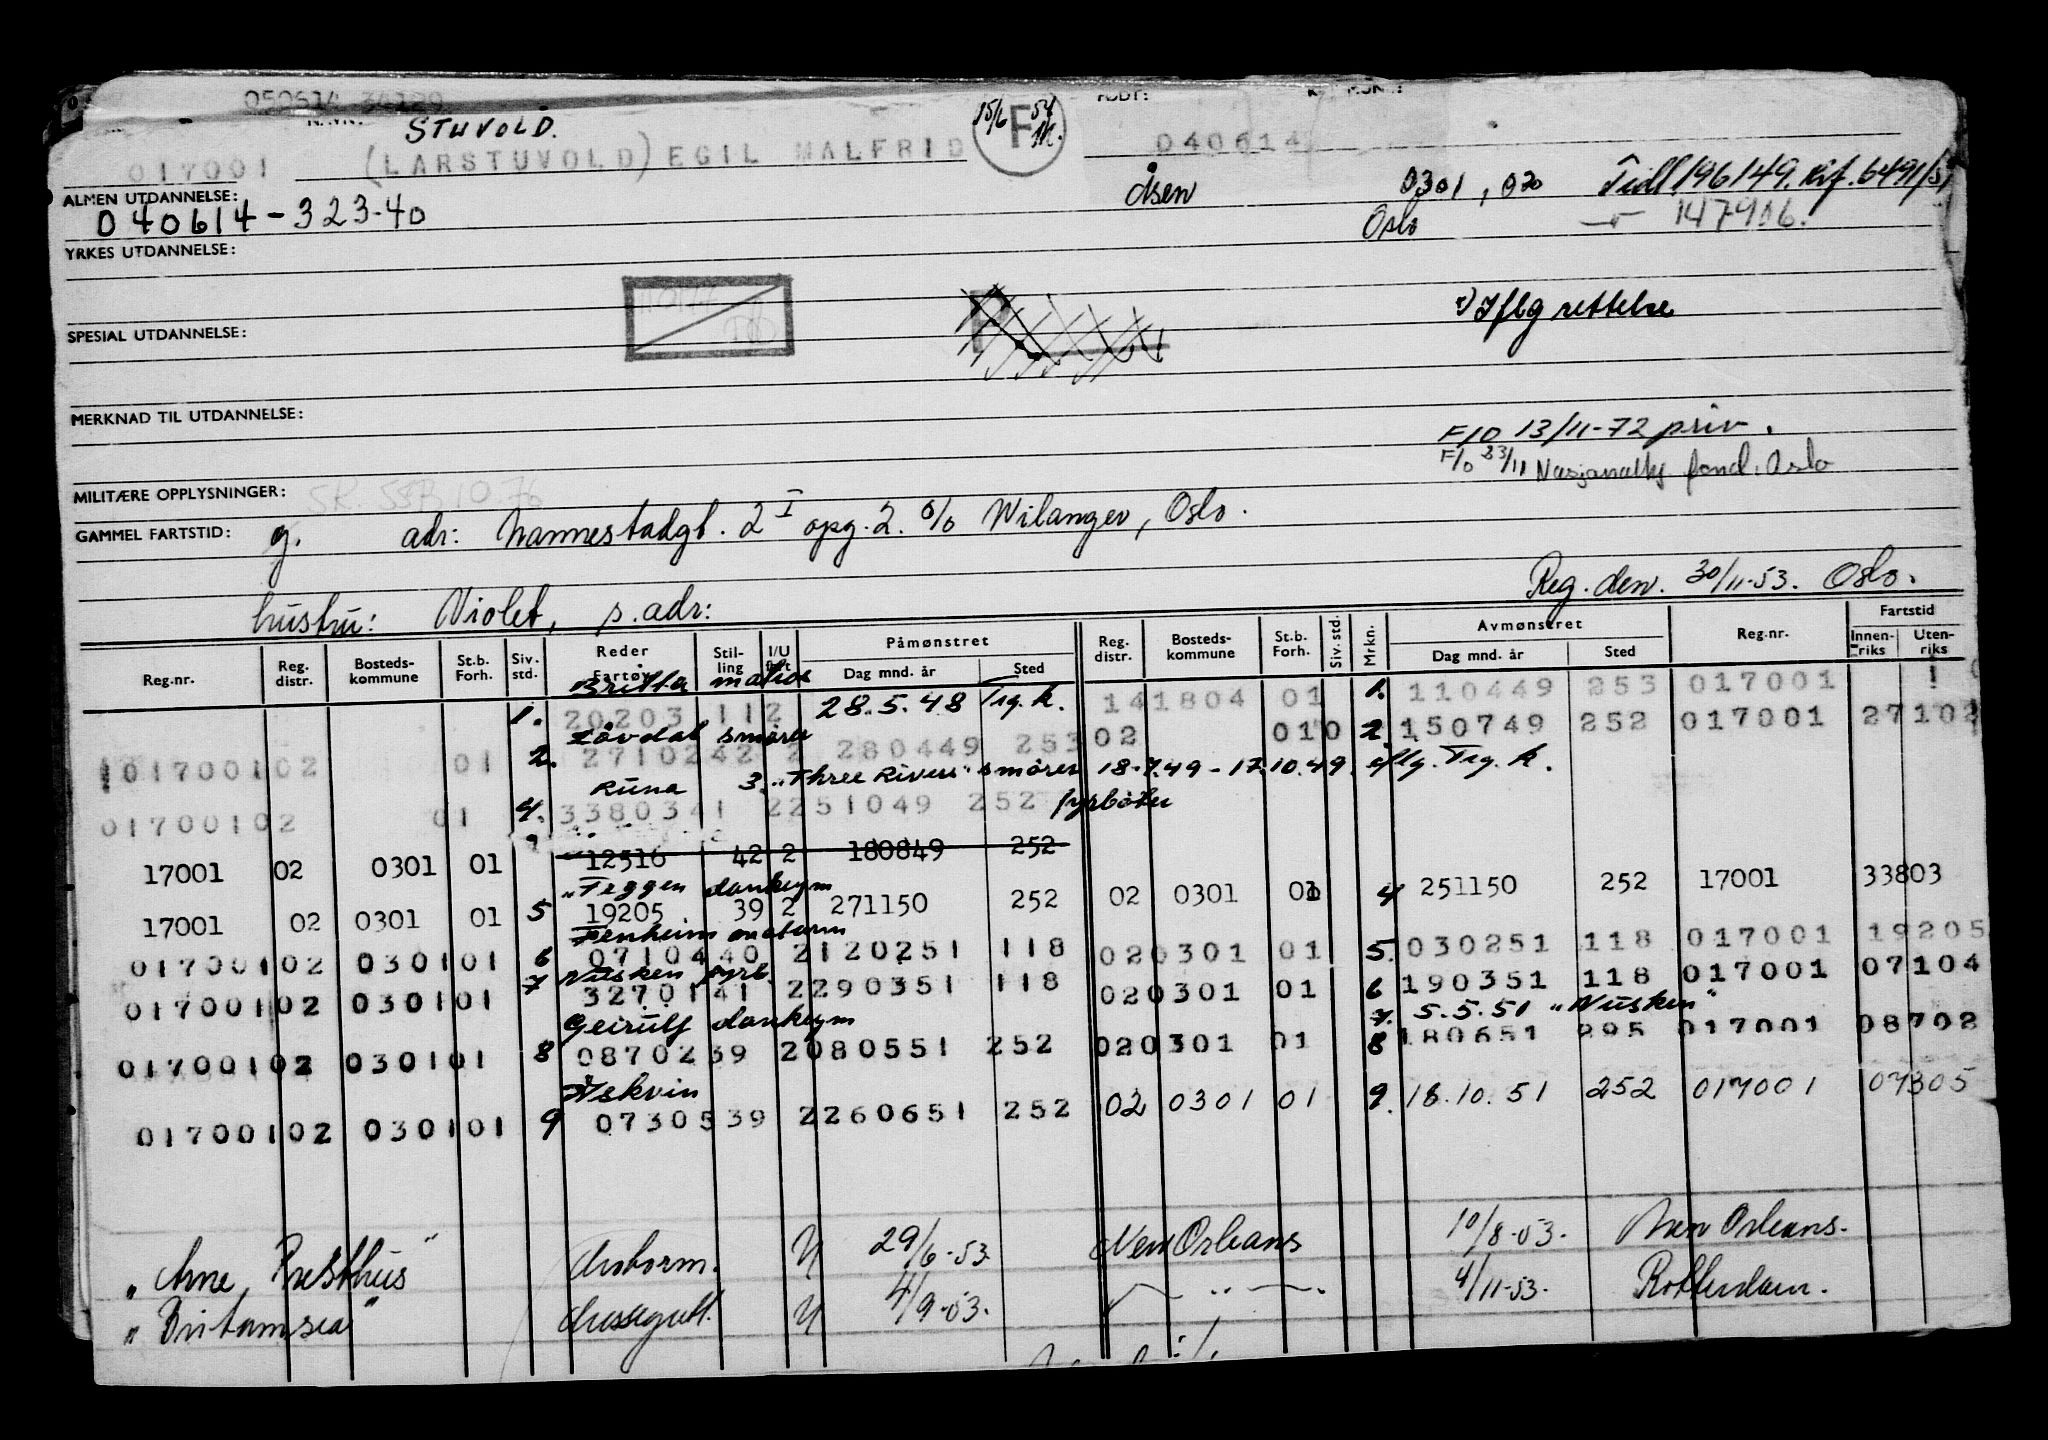 050614 34129
NAVN: STUVOLD. 15/6 F 54 FØDT:
017001 (LARSTUVOLD) EGIL MALFRID 040614
ALMEN UTDANNELSE: Åsen 0301, 020 Tidl 196149. Rif. 6491/51
040614-323-40 Oslo 147906.
YRKES UTDANNELSE:
*) Iflg rettelse
SPESIAL UTDANNELSE:
MERKNAD TIL UTDANNELSE:
F/O 13/11-72 priv.
F/o 23/11 fond. Oslo
MILITÆRE OPPLYSNINGER: SR. SSB 10.76
GAMMEL FARTSTID: g. adr: Nannestadgt. 2 I opg. 2. c/o Wilanger, Oslo.
Reg. den. 30/11-53. Oslo.
hustru: Violet, s. adr:
Reg.nr. Reg. distr. Bosteds-kommune St.b. Forh. Siv. std. Reder Fartøy Stil-ling I/U fart Påmønstret Dag mnd. år Sted Reg. distr. Bosteds-kommune St.b. Forh. Siv. std. Mrkn. Avmønstret Dag mnd. år Sted Reg.nr. Fartstid Innen-riks Uten-riks
Britta matros
1. 20203 11 2 28.5.48 Trg. k. 141804 01 1. 110449 253 017001
Løvdal smører
017001 02 01 2. 27102 42 2 280449 253 02 01 0 2. 150749 252 017001 27102
Runa 3. "Three Rivers" smører 18-7.49 - 17.10.49. iflg. Trg. k.
017001 02 01 4. 33803 41 2 251049 252 fyrbøter
17001 02 0301 01 12516 42 2 180849 252
"Teggen donkeym
17001 02 0301 01 5 19205 39 2 271150 252 02 0301 01 4 251150 252 17001 33803
Fenheim motorm
017001 02 0301 01 6 07104 40 2 120251 118 02 0301 01 5. 030251 118 017001 19205
Nusken fyrb.
017001 02 0301 01 7 32701 41 2 290351 118 02 0301 01 6 190351 118 017001 07104
7. 5.5.51 "Nusken"
Geirulf donkeym
017001 02 0301 01 8 08702 39 2 080551 252 02 0301 01 8 180651 295 017001 08702
Askvin
017001 02 0301 01 9 07305 39 2 260651 252 02 0301 01 9. 18.10.51 252 017001 07305
"Arne Presthus" Motorm. U 29/6-53 New Orleans 10/8-53. New Orleans.
"Britamsea" Messegutt. U 4/9-53. — " — 4/11-53. Rotterdam.